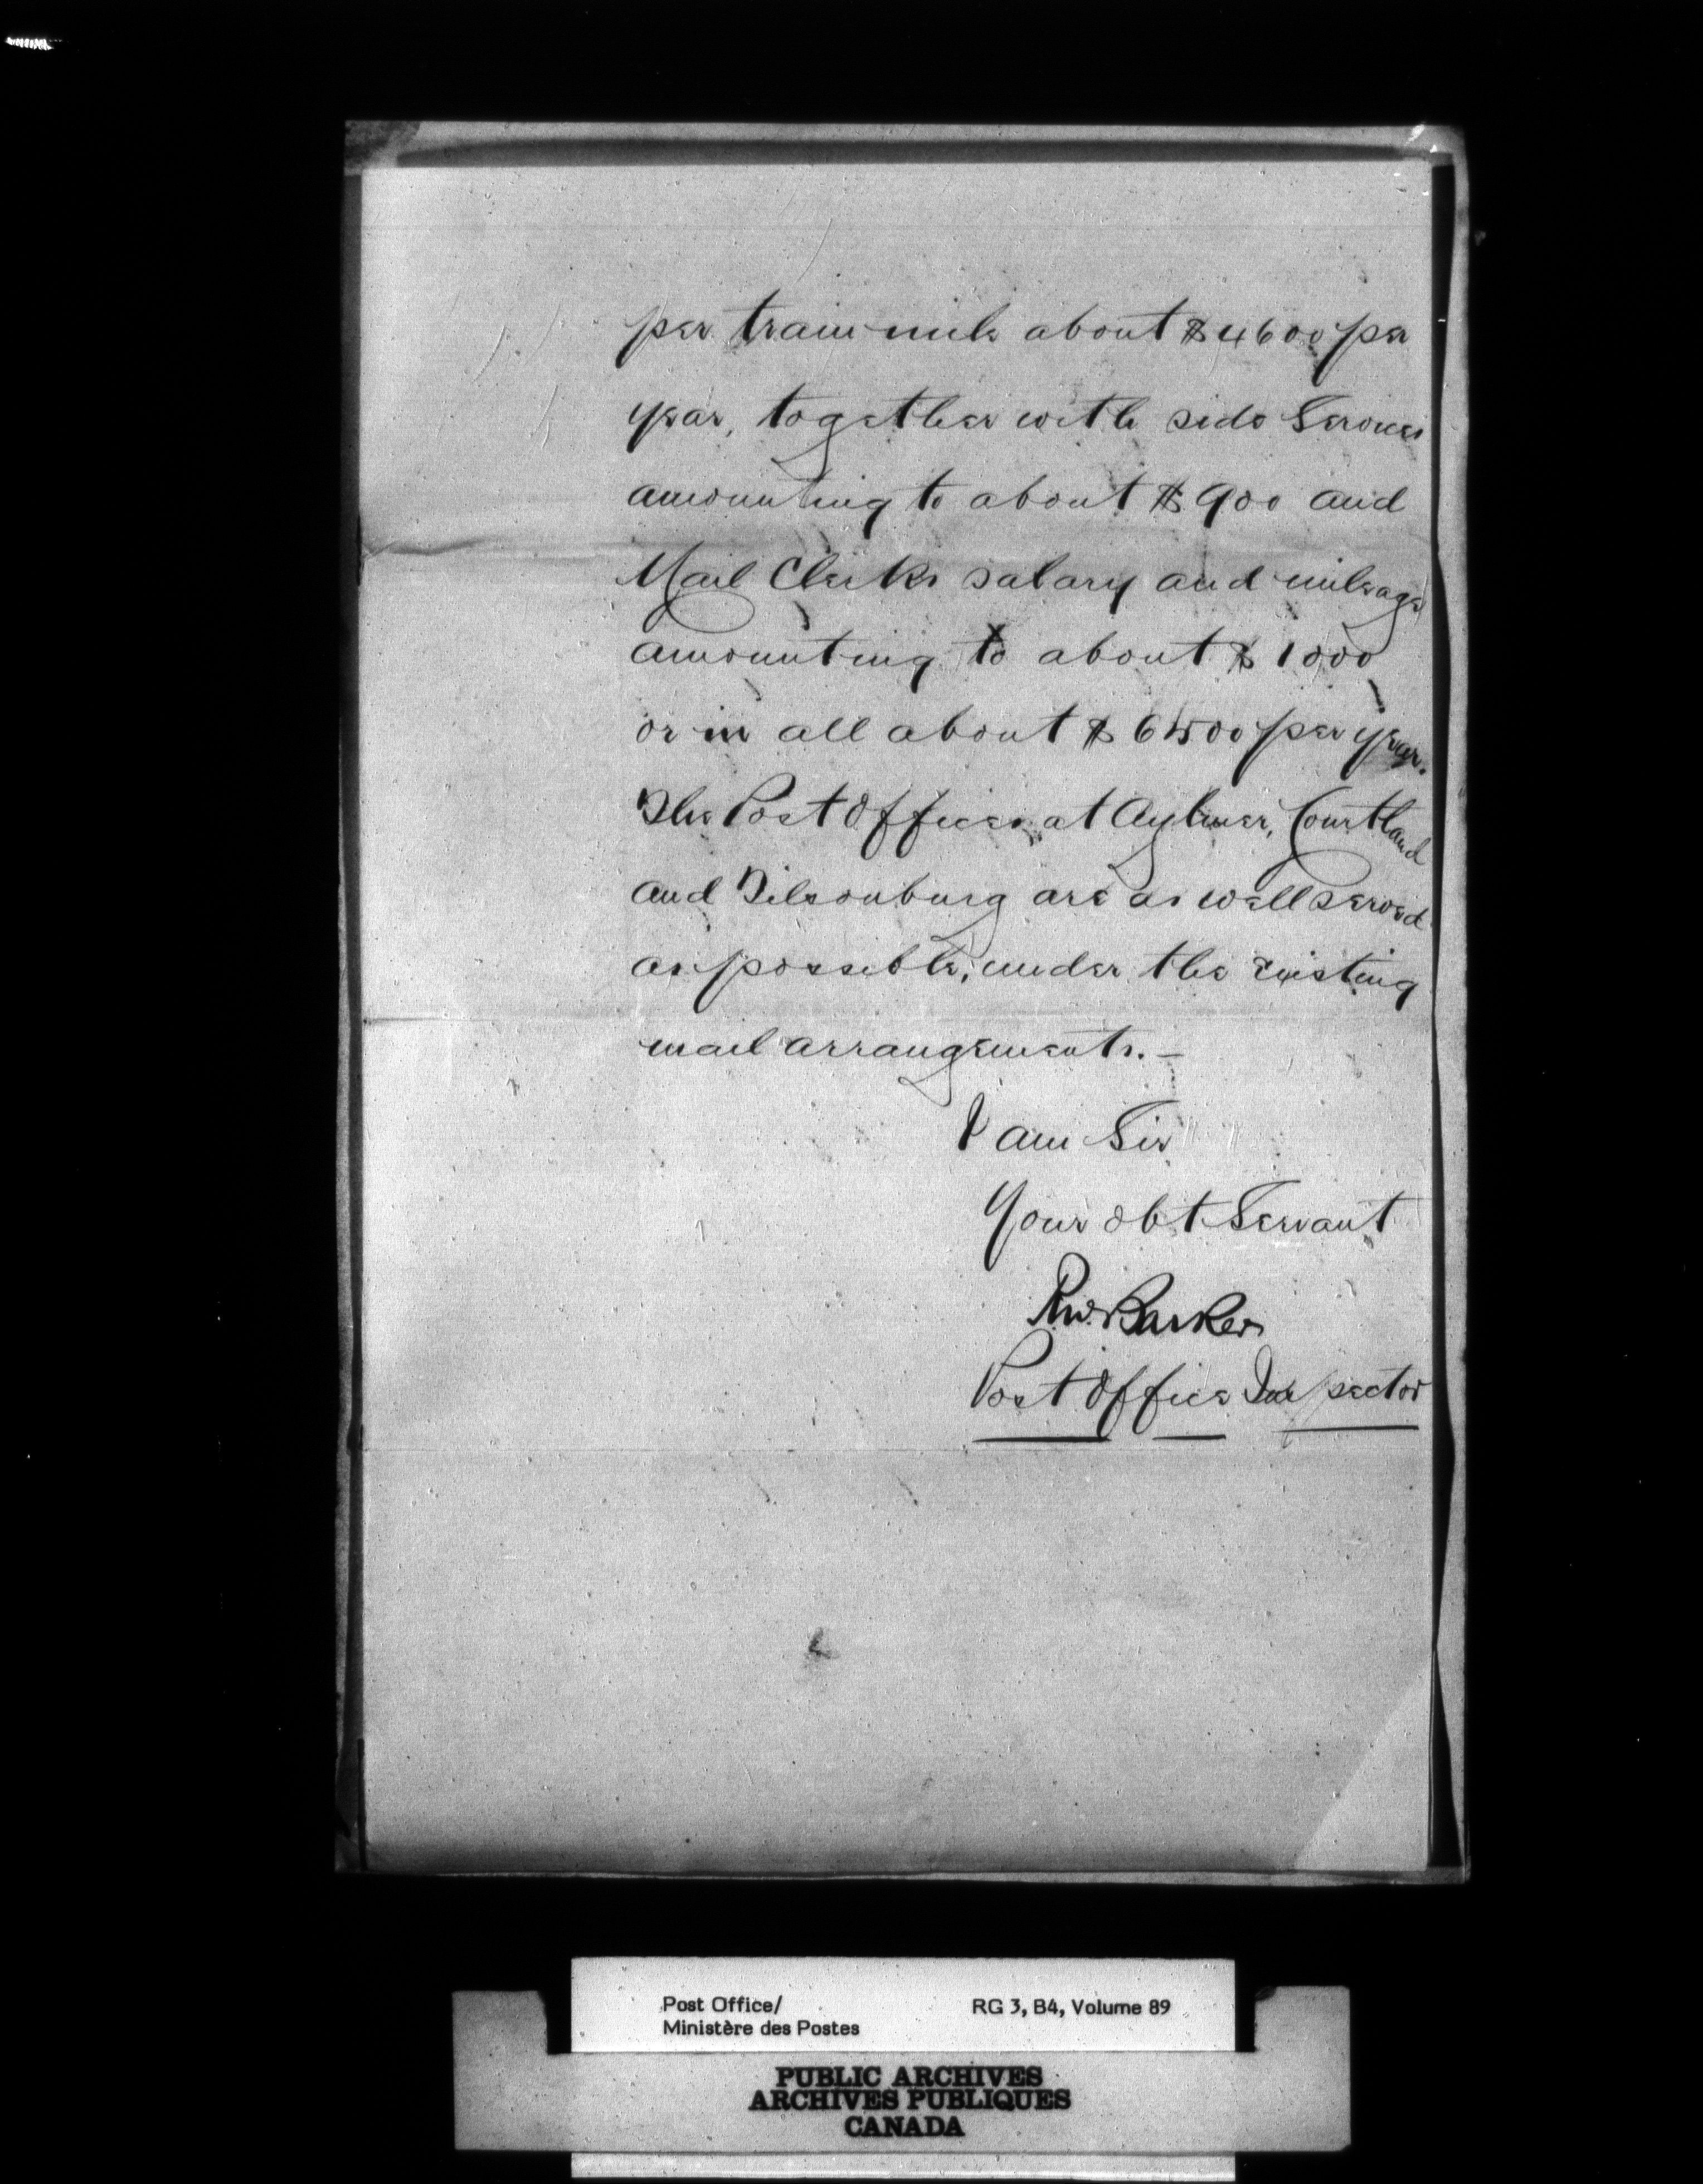 per train mile about $4600 per
year, together with side Services
amounting to about $900 and
Mail Clerks salary and mileage
amounting to about $1000
or in all about $6500 per year.
The Post Offices at Aylmer, Courtland
and Tilsonburg are as well served
as possible, under the existing
mail arrangements. —
I am Sir
Your obt Servant
R.W. Barker
Post Office Inspector
Post Office/ RG 3, B4, Volume 89
Ministère des Postes
PUBLIC ARCHIVES
ARCHIVES PUBLIQUES
CANADA